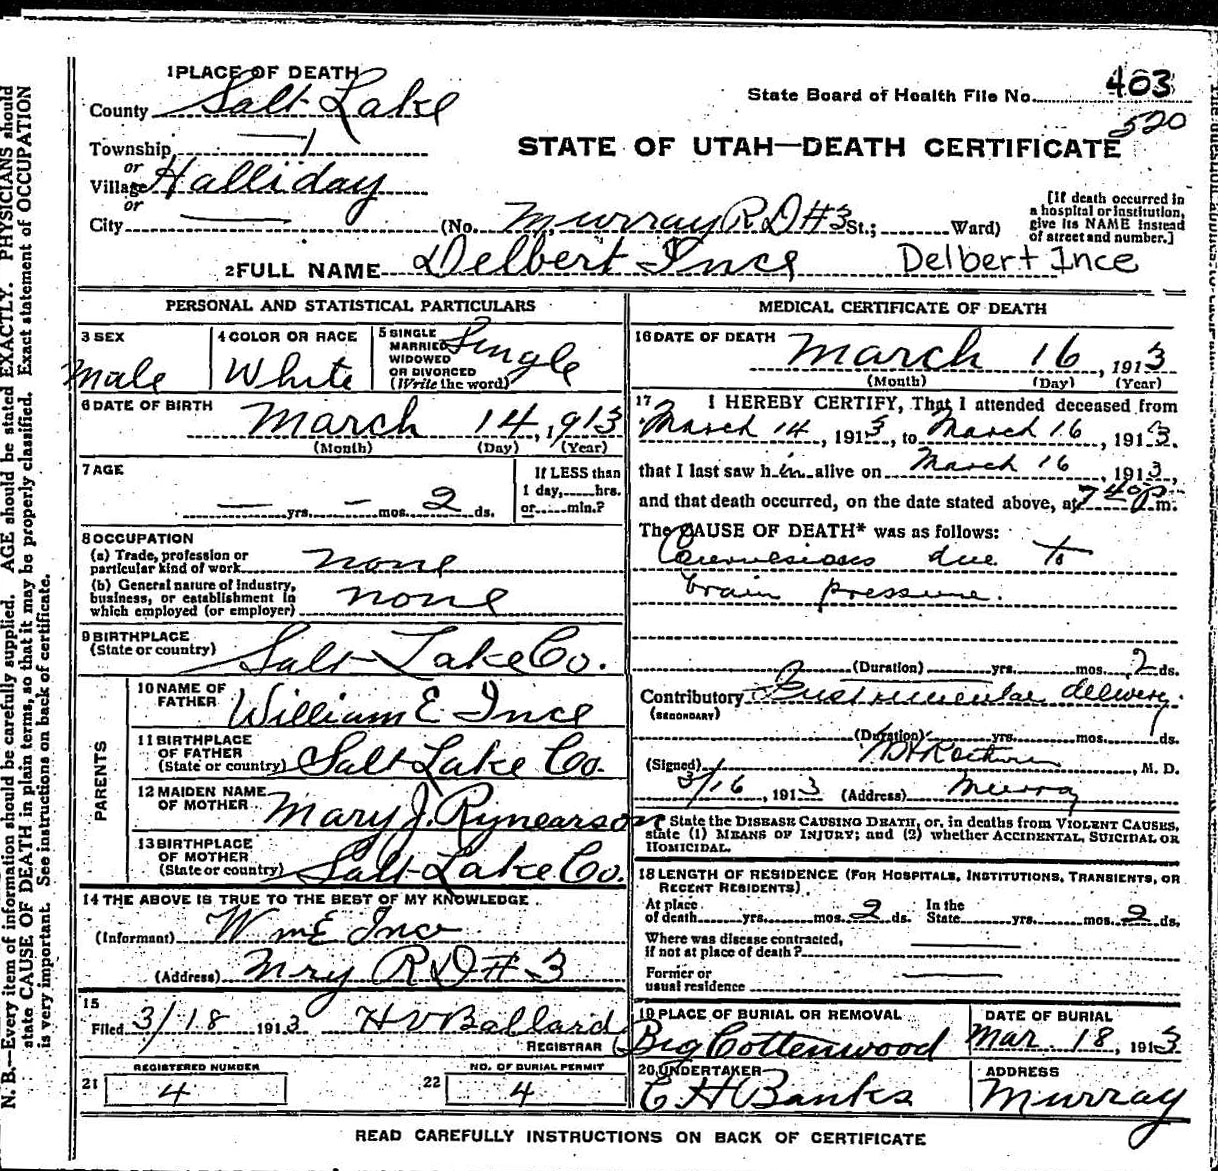 1 PLACE OF DEATH
County Salt Lake
State Board of Health File No. 403
520
Township — 1
STATE OF UTAH—DEATH CERTIFICATE
or
Village Halliday
or
City — (No. Murray R D #3 St.; Ward)
[If death occurred in a hospital or institution, give its NAME instead of street and number.]
2 FULL NAME Delbert Ince Delbert Ince
PERSONAL AND STATISTICAL PARTICULARS
3 SEX
Male
4 COLOR OR RACE
White
5 SINGLE
MARRIED
WIDOWED
OR DIVORCED
(Write the word)
Single
6 DATE OF BIRTH
March 14, 1913
(Month) (Day) (Year)
7 AGE
— yrs. — mos. 2 ds.
If LESS than
1 day, hrs.
or min.?
8 OCCUPATION
(a) Trade, profession or
particular kind of work none
(b) General nature of industry,
business, or establishment in
which employed (or employer) none
9 BIRTHPLACE
(State or country) Salt Lake Co.
PARENTS
10 NAME OF
FATHER William E Ince
11 BIRTHPLACE
OF FATHER
(State or country) Salt Lake Co.
12 MAIDEN NAME
OF MOTHER Mary J. Rynearson
13 BIRTHPLACE
OF MOTHER
(State or country) Salt Lake Co.
14 THE ABOVE IS TRUE TO THE BEST OF MY KNOWLEDGE
(Informant) Wm E Ince
(Address) Mry R D # 3
15
Filed 3/18 1913 H V Ballard
REGISTRAR
21 REGISTERED NUMBER
4
22 NO. OF BURIAL PERMIT
4
MEDICAL CERTIFICATE OF DEATH
16 DATE OF DEATH
March 16, 1913
(Month) (Day) (Year)
17 I HEREBY CERTIFY, That I attended deceased from
March 14, 1913, to March 16, 1913.
that I last saw him alive on March 16, 1913,
and that death occurred, on the date stated above, at 7 40 p m.
The CAUSE OF DEATH* was as follows:
due to
brain pressure.
(Duration) yrs. mos. 2 ds.
Contributory Instrumental delivery.
(SECONDARY)
(Duration) yrs. mos. ds.
(Signed) , M. D.
3/16, 1913 (Address) Murray
* State the DISEASE CAUSING DEATH, or, in deaths from VIOLENT CAUSES,
state (1) MEANS OF INJURY; and (2) whether ACCIDENTAL, SUICIDAL OR
HOMICIDAL.
18 LENGTH OF RESIDENCE (FOR HOSPITALS, INSTITUTIONS, TRANSIENTS, OR
RECENT RESIDENTS)
At place
of death yrs. mos. 2 ds. In the
State yrs. mos. 2 ds.
Where was disease contracted,
if not at place of death? —
Former or
usual residence —
19 PLACE OF BURIAL OR REMOVAL
Big Cottenwood
DATE OF BURIAL
Mar. 18, 1913
20 UNDERTAKER
C H Banks
ADDRESS
Murray
READ CAREFULLY INSTRUCTIONS ON BACK OF CERTIFICATE
N. B.—Every item of information should be carefully supplied. AGE should be stated EXACTLY. PHYSICIANS should
state CAUSE OF DEATH in plain terms, so that it may be properly classified. Exact statement of OCCUPATION
is very important. See instructions on back of certificate.